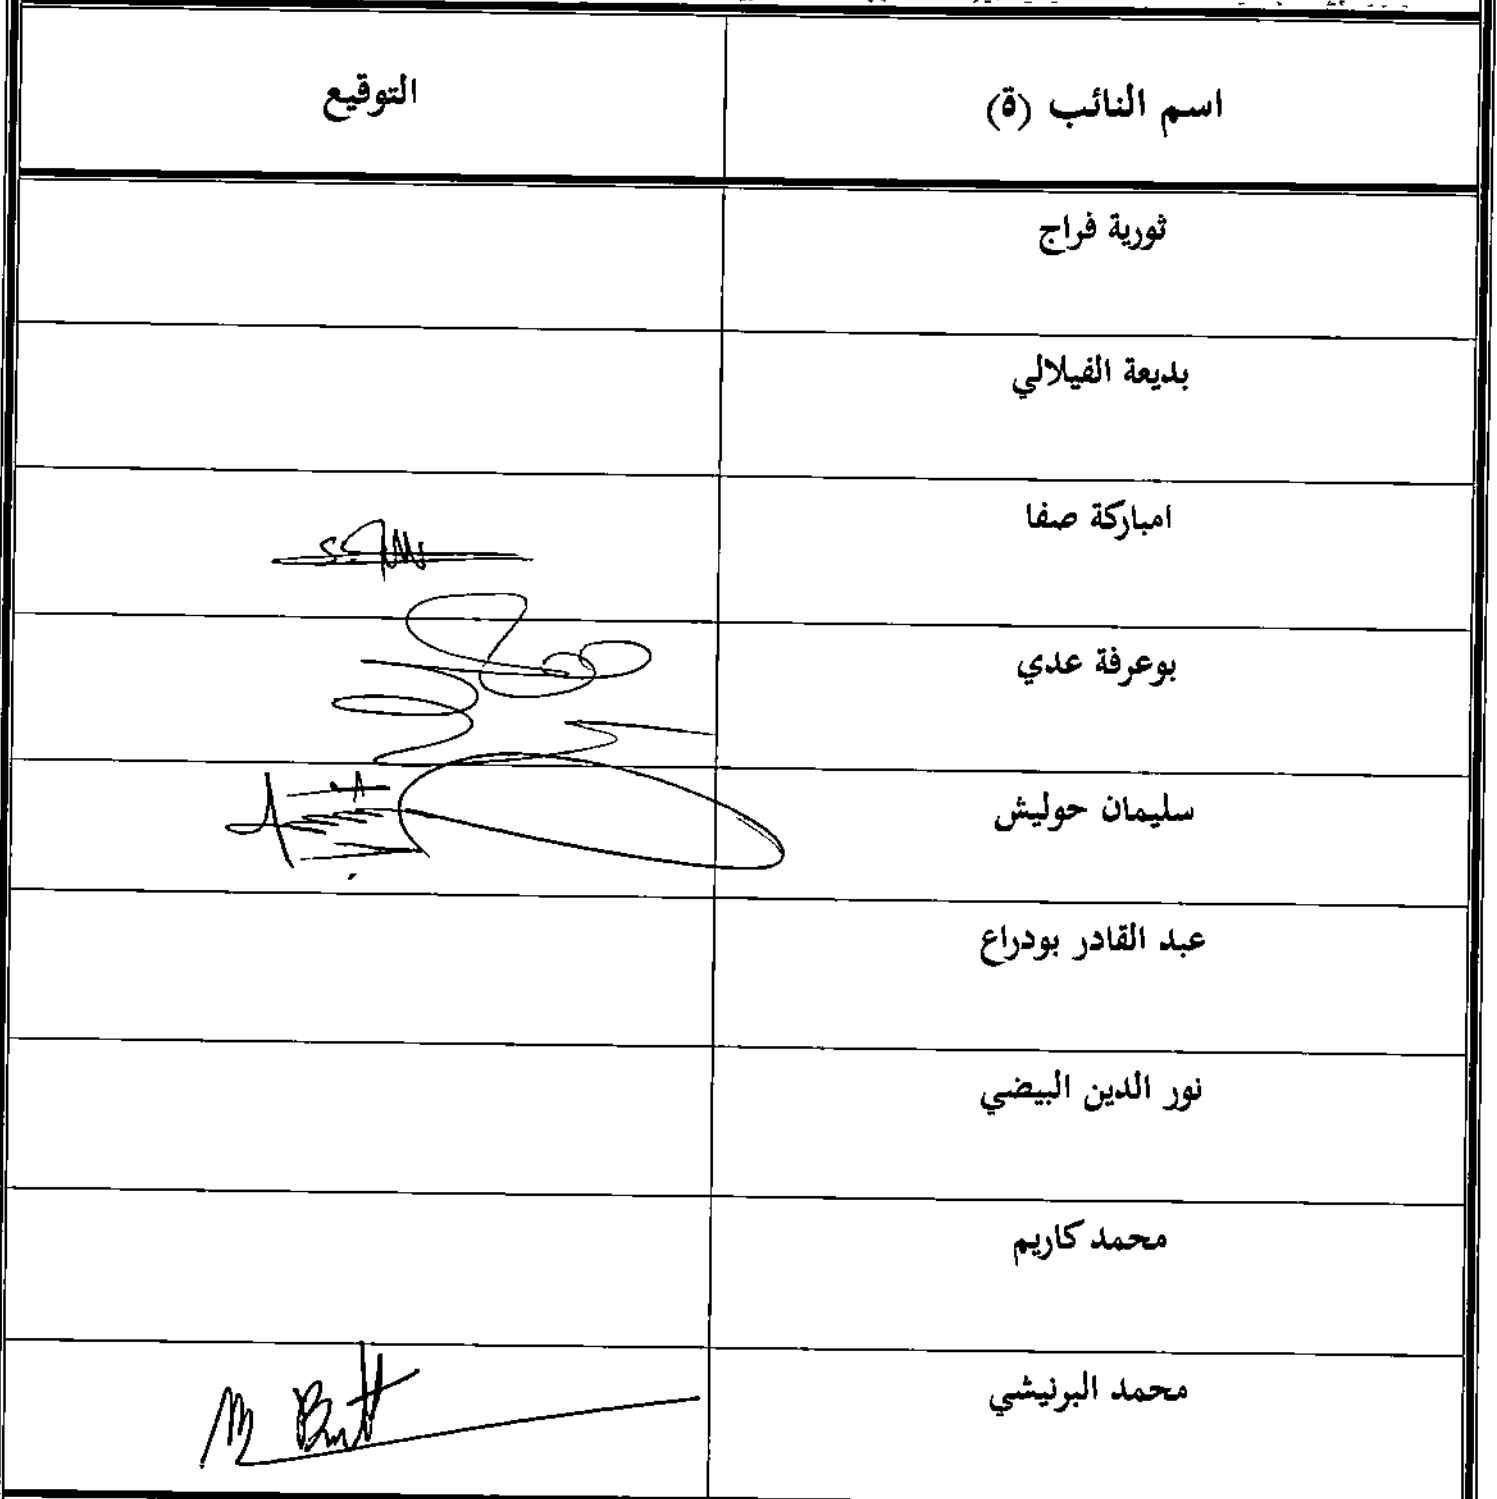 اسم النائب (ة)
التوقيع
ثورية فراج
بديعة الفيلالي
امباركة صفا
بوعرفة عدي
سليمان حوليش
عبد القادر بودراع
نور الدين البيضي
محمد كاريم
محمد البرنيشي